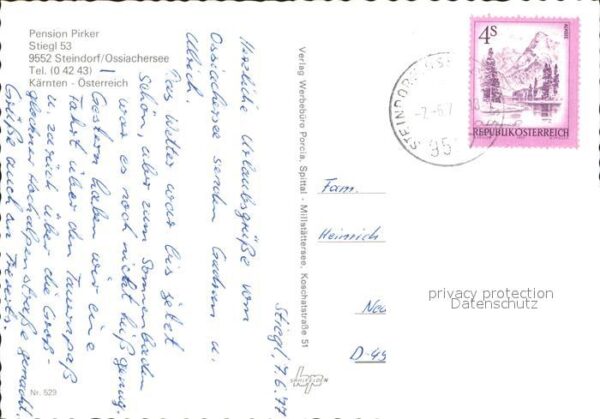 Pension Pirker
Stiegl 53
9552 Steindorf/Ossiachersee
Tel. (0 42 43)
Kärnten - Österreich
Stiegl, 7.6.77
Herzliche Urlaubsgrüße vom
Ossiachersee senden Gudrun u.
Ulrich.
Das Wetter war bis jetzt
schön, aber zum Sonnenbaden
war es noch nicht heiß genug.
Gestern haben wir eine
Fahrt über den Tauernpaß
u. zurück über die Groß-
glockner Hochalpenstraße gemacht.
Grüße auch an
Nr. 529
Verlag Werbebüro Porcia, Spittal - Millstättersee, Koschatstraße 51
4S
REPUBLIK ÖSTERREICH
STEINDORF
-7.-6.7
95
Fam.
Heinrich
D-
privacy protection
Datenschutz